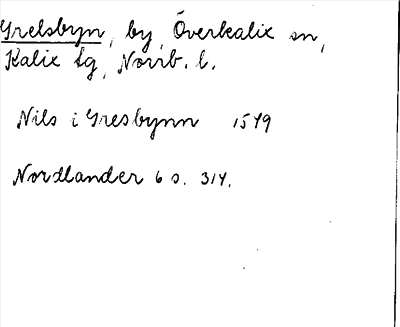 Grelsbyn, by, Överkalix sn,
Kalix tg, Norrb. l.
Nils i Gresbynn 1579
Nordlander 6 s. 314.